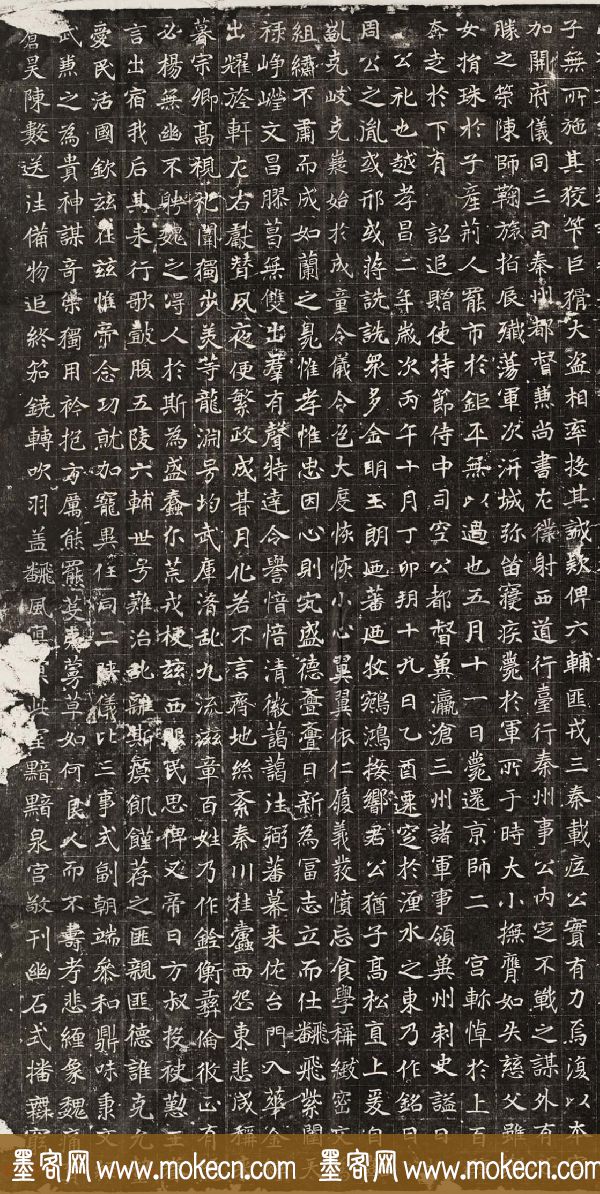 子無所施其狡筭巨猾大盗相率投其誠欵俾六輔匪戎三秦載底公實有力焉復以本
加開府儀同三司秦州都督兼尚書左僕射西道行臺行秦州事公内定不戰之謀外有
勝之榮陳師鞠旅指辰殲蕩軍次汧城弥留寢疾薨於軍所于時大小撫膺如失慈父雖
女捐珠於子產荊人罷市於鉅平無以過也五月十一日喪還京師二宮軫悼於上百
奔走於下有詔追贈使持節侍中司空公都督冀瀛滄三州諸軍事領冀州刺史謚曰
公礼也越孝昌二年歲次丙午十月丁卯朔十九日乙酉遷窆於湹水之東乃作銘曰
周公之胤或邢或蒋詵詵眾多金明玉朗迺蕃迺牧鵷鴻接響君公猶子高松直上爰自
凱克岐克嶷始於成童令儀令色大度恢恢小心翼翼依仁履義發憤忘食學稱緻密文
組繡不肅而成如蘭之馥惟孝惟忠因心則究盛德亹亹日新為冨志立而仕翻飛紫闥天
禄峥嶸文昌膠葛朶雙出羣有聲特達令譽愔愔清徽藹藹往弼蕃幕来佐台門入華金
出耀旍軒左右獻替夙夜便繁政成朞月化若不言齊地絲紊秦川柱蠹西怨東悲咸稱
蕃宗卿高視祀聞獨步美等龍渊号均武庫湻乱九流滋章百姓乃作銓衡彝倫攸正有
必揚無幽不聘魏之得人於斯為盛蠢尒荒戎梗兹西服民思俾乂帝曰方叔投袂懃王
言出宿我后其来行歌鼓腹五陵六輔世号難治乱離斯瘼飢饉荐之匪親匪德誰克允
愛民活國欽兹在兹惟帝念功就加寵異任同二陕儀比三事式副朝端叅和鼎味秉文
武燕之為貴神謀奇筞獨用衿抱方厲熊羆芟夷蔓草如何良人而不壽考悲缠象魏痛
倉昊陳數送往備物追終笳鐃轉吹羽盖翻風此室黯黯泉宫敬刊幽石式播
墨客网 www.mokecn.com 墨客网 www.mokecn.com